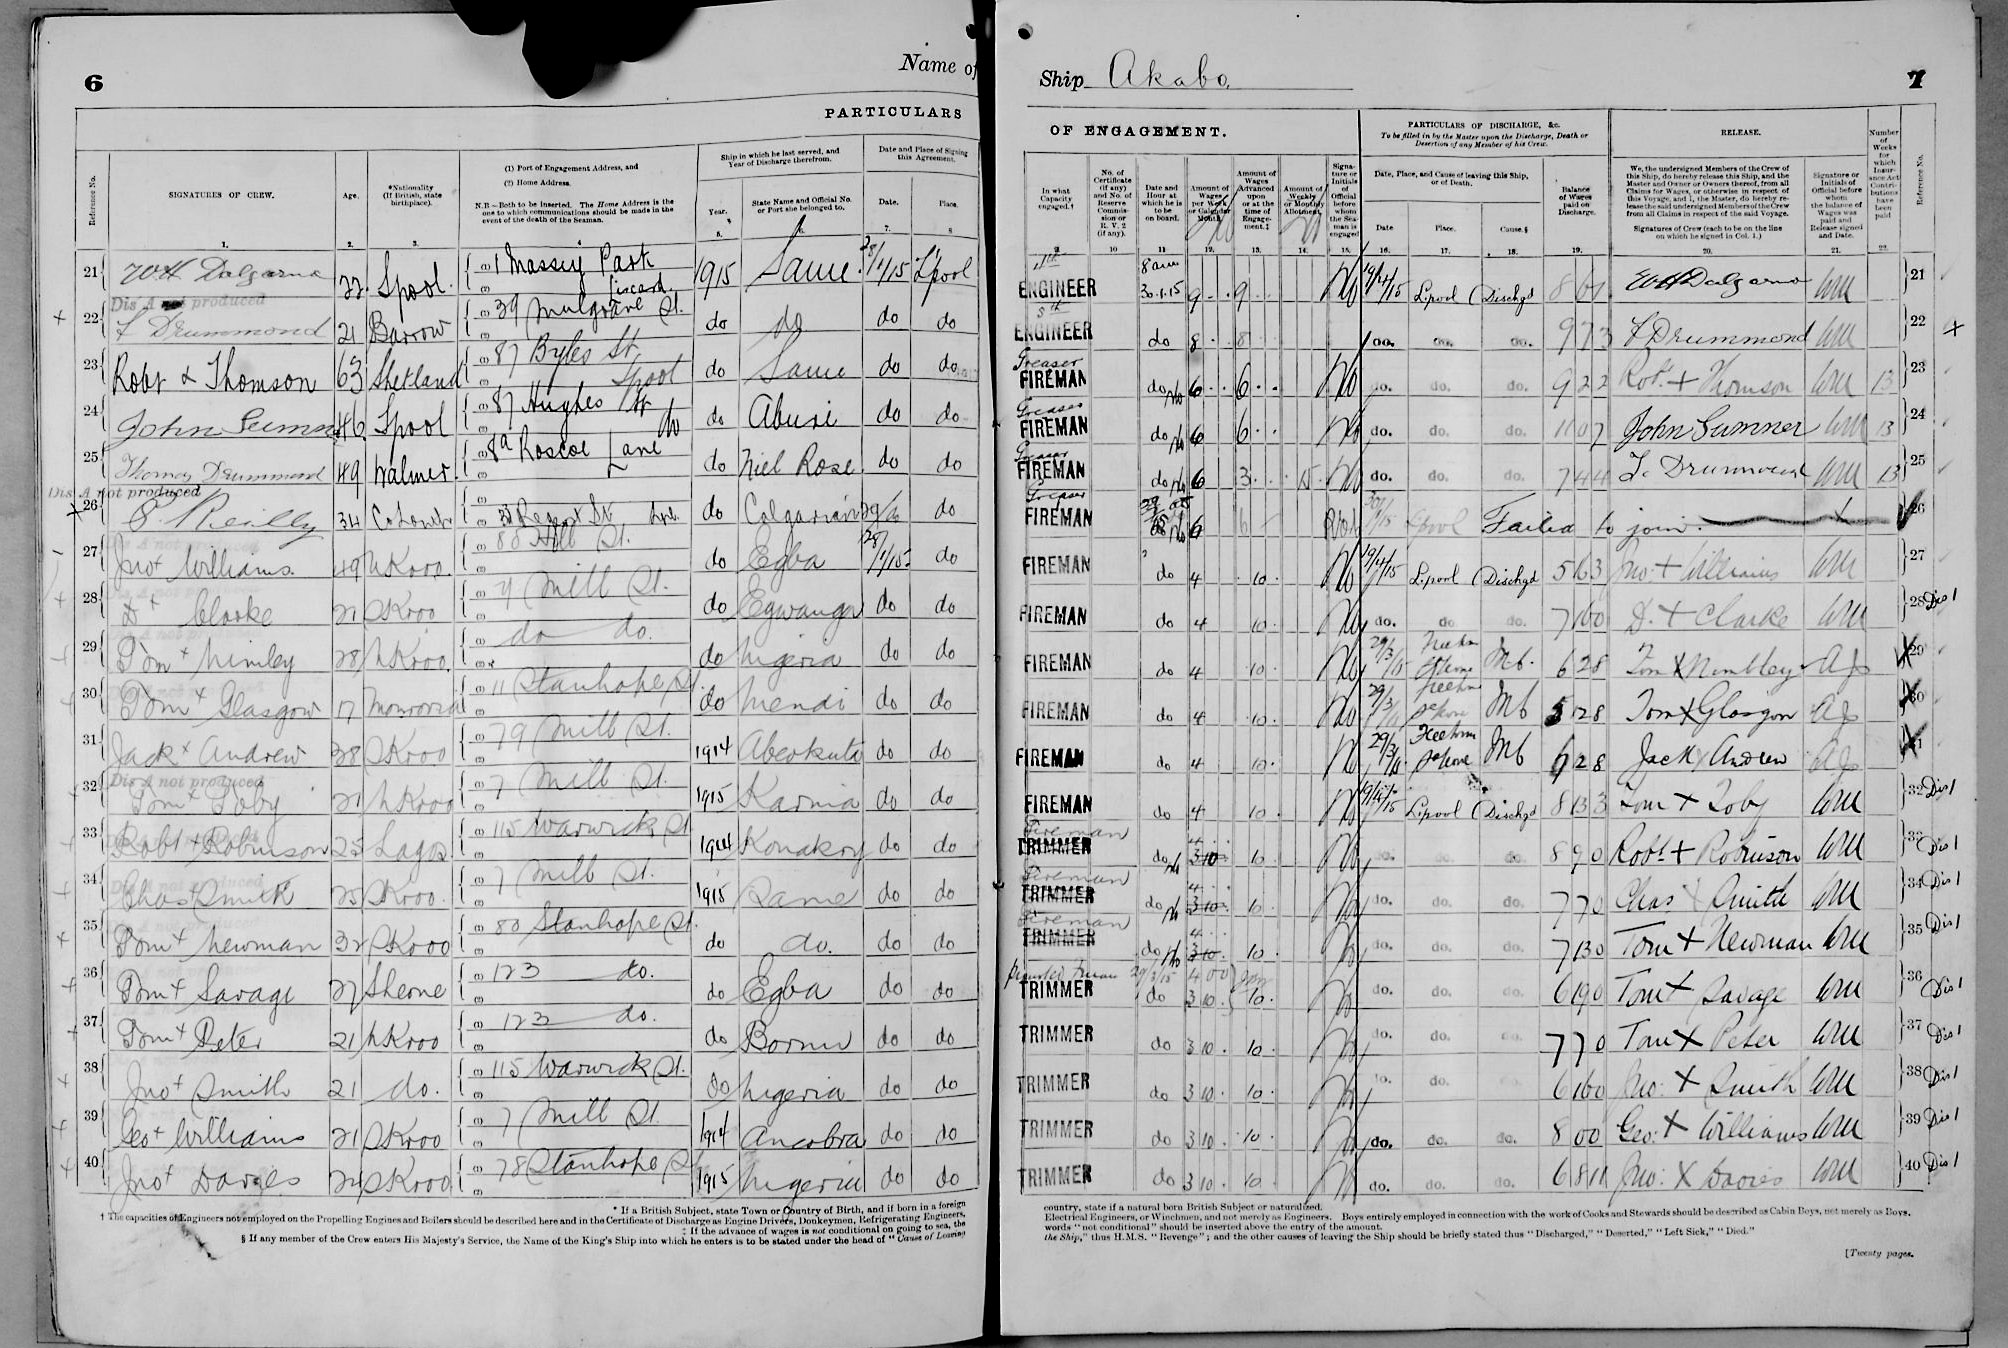 6
Name of
PARTICULARS
Reference No.
SIGNATURES OF CREW.
Age.
*Nationality (If British, state birthplace).
(1) Port of Engagement Address, and
(2) Home Address.
N.B.—Both to be inserted. The Home Address is the one to which communications should be made in the event of the death of the Seaman.
Ship in which he last served, and Year of Discharge therefrom.
Year.
State Name and Official No. or Port she belonged to.
Date and Place of Signing this Agreement.
Date.
Place.
1. 2. 3. 4 5. 6. 7. 8
21 WH Dalgarno 22 Lpool. 1 Massey Park Liscard 1915 Same. 28/1/15 L'pool
Dis A not produced
22 F Drummond 21 Barrow 39 Mulgrave St. do do do do
23 Robt x Thomson 63 Shetland 87 Byles St Lpool do Same do do
24 John Sumner 46 Lpool 87 Hughes St do do Abusi do do
25 Thomas Drummond 49 Walmer. 8a Roscoe Lane do Niel Rose. do do
Dis A not produced
26 P. Reilly 34 Regent St do Calgarian 29/1 do
27 Jno x Williams. 49 NKroo. 80 Hill St. do Egba 28/1/15 do
28 D x Clarke 21 SKroo 7 Mill St. do Egwanga do do
29 Tom x Nimley 28 NKroo. do do. do Nigeria do do
30 Tom x Glasgow 17 Monrovia 11 Stanhope St. do Mendi do do
31 Jack x Andrew 38 SKroo 79 Mill St. 1914 Abeokuta do do
Dis A not produced
32 Tom x Toby 21 NKroo 7 Mill St. 1915 Karina do do
33 Robt x Robinson 25 Lagos 115 Warwick St 1914 Konakry do do
34 Chas x Smith 25 SKroo. 7 Mill St. 1915 Same do do
35 Tom x Newman 32 SKroo 80 Stanhope St. do do. do do
36 Tom x Savage 27 Sherne 123 do. do Egba do do
37 Tom x Peter 21 NKroo 123 do. do Bornu do do
38 Jno x Smith 21 do. 115 Warwick St. do Nigeria do do
39 Geo x Williams 21 SKroo 7 Mill St. 1914 Ancobra do do
40 Jno x Davies 24 SKroo 78 Stanhope St. 1915 Nigeria do do
* If a British Subject, state Town or Country of Birth, and if born in a foreign
† The capacities of Engineers not employed on the Propelling Engines and Boilers should be described here and in the Certificate of Discharge as Engine Drivers, Donkeymen, Refrigerating Engineers,
‡ If the advance of wages is not conditional on going to sea, the
§ If any member of the Crew enters His Majesty's Service, the Name of the King's Ship into which he enters is to be stated under the head of "Cause of Leaving
Ship Akabo.
7
OF ENGAGEMENT.
PARTICULARS OF DISCHARGE, &c.
To be filled in by the Master upon the Discharge, Death or Desertion of any Member of his Crew.
RELEASE.
In what Capacity engaged.†
No. of Certificate (if any) and No. of Reserve Commission or R. V. 2 (if any).
Date and Hour at which he is to be on board.
Amount of Wages per Week or Calendar Month.
Amount of Wages Advanced upon or at the time of Engagement.‡
Amount of Weekly or Monthly Allotment.
Signature or Initials of Official before whom the Seaman is engaged
Date, Place, and Cause of leaving this Ship, or of Death.
Date Place. Cause.§
Balance of Wages paid on Discharge.
We, the undersigned Members of the Crew of this Ship, do hereby release this Ship, and the Master and Owner or Owners thereof, from all Claims for Wages, or otherwise in respect of this Voyage, and I, the Master, do hereby release the said undersigned Members of the Crew from all Claims in respect of the said Voyage.
Signatures of Crew (each to be on the line on which he signed in Col. 1.)
Signature or Initials of Official before whom the balance of Wages was paid and Release signed and Date.
Number of Weeks for which Insurance Act Contributions have been paid
Reference No.
9. 10 11 12. 13. 14. 15. 16. 17. 18. 19. 20. 21. 22.
4th ENGINEER 8 am 30.1.15 9 9 19/4/15 Lpool Dischgd WH Dalgarno WM 21
5th ENGINEER do 8 8 do. do. do. 9 7 3 F Drummond WM 22
Greaser FIREMAN do 6 6 do. do. do. 9 2 2 Robt + Thomson WM 13 23
Greaser FIREMAN do 6 6 do. do. do. 11 0 7 John Sumner WM 13 24
Greaser FIREMAN do 6 3 15 do. do. do. 7 4 4 T. Drummond WM 13 25
Greaser FIREMAN 6 6 30/1/15 Lpool Failed to join. 26
FIREMAN do 4 10 19/4/15 Lpool Dischgd 5 6 3 Jno: + Williams WM 27
FIREMAN do 4 10 do. do do. 7 16 0 D. + Clarke WM 28 Dis 1
FIREMAN do 4 10 29/3/15 M6. 6 2 8 Tom X Nimbley 29
FIREMAN do 4 10 29/3 M6 5 12 8 Tom X Glasgow 30
FIREMAN do 4 10 29/3/15 M6 6 2 8 Jack X Andrew 31
FIREMAN do 4 10 19/4/15 Lpool Dischgd 8 13 3 Tom + Toby WM 32 Dis 1
Fireman TRIMMER do 4 3 10 10 do. do. do. 8 9 0 Robt. + Robinson WM 33 Dis 1
Fireman TRIMMER do 4 3 10 10 do. do. do. 7 7 0 Chas X Smith WM 34 Dis 1
Fireman TRIMMER do 4 3 10 10 do. do. do. 7 13 0 Tom + Newman WM 35 Dis 1
TRIMMER do 4 0 0 3 10 10 do. do. do. 6 19 0 Tom + Savage WM 36 Dis 1
TRIMMER do 3 10 10 do. do. do. 7 7 0 Tom X Peter WM 37 Dis 1
TRIMMER do 3 10 10 do. do. do. 6 16 0 Jno: X Smith WM 38 Dis 1
TRIMMER do 3 10 10 do. do. do. 8 0 0 Geo: + Williams WM 39 Dis 1
TRIMMER do 3 10 10 do. do. do. Jno: X Davies WM 40 Dis 1
country, state if a natural born British Subject or naturalized.
Electrical Engineers, or Winchmen, and not merely as Engineers. Boys entirely employed in connection with the work of Cooks and Stewards should be described as Cabin Boys, not merely as Boys.
words "not conditional" should be inserted above the entry of the amount.
the Ship," thus H.M.S. "Revenge"; and the other causes of leaving the Ship should be briefly stated thus "Discharged," "Deserted," "Left Sick," "Died."
[Twenty pages.